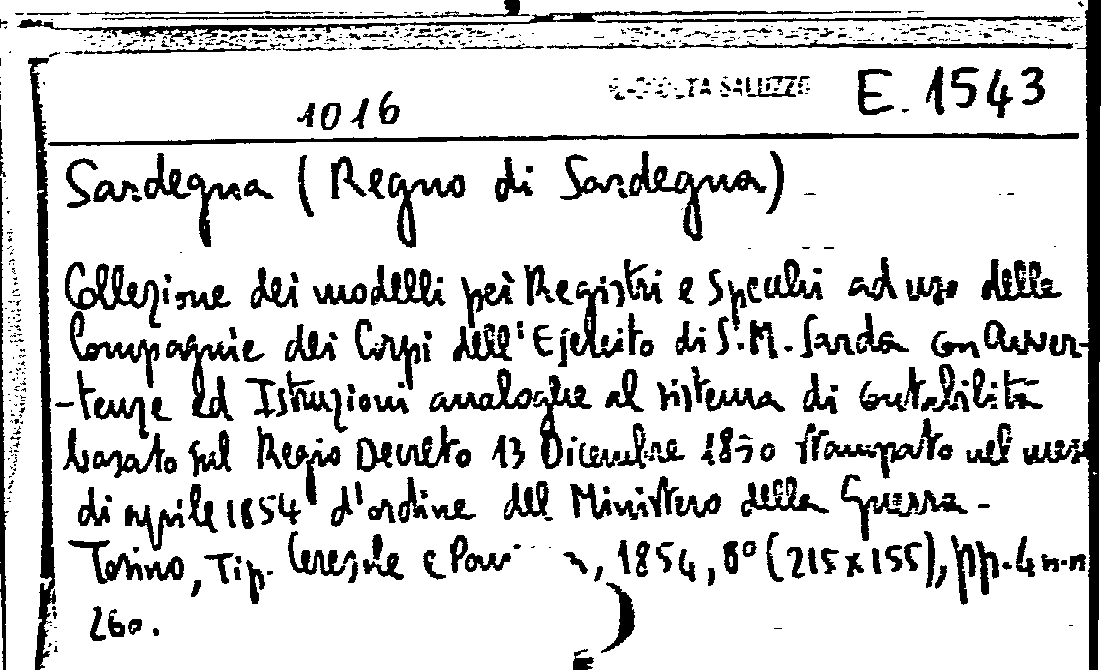 RACCOLTA SALUZZO E. 1543
1016
Sardegna (Regno di Sardegna)
Collezione dei modelli pei Registri e Specchi ad uso delle
Compagnie dei Corpi dell'Esercito di S.M. Sarda con Avver-
-tenze ed Istruzioni analoghe al sistema di contabilità
basato sul Regio Decreto 13 Dicembre 1850 stampato nel mese
di aprile 1854 d'ordine del Ministero della Guerra -
Torino, Tip. Ceresole e , 1854, 8° (215x155), pp. 4 n.n
260.